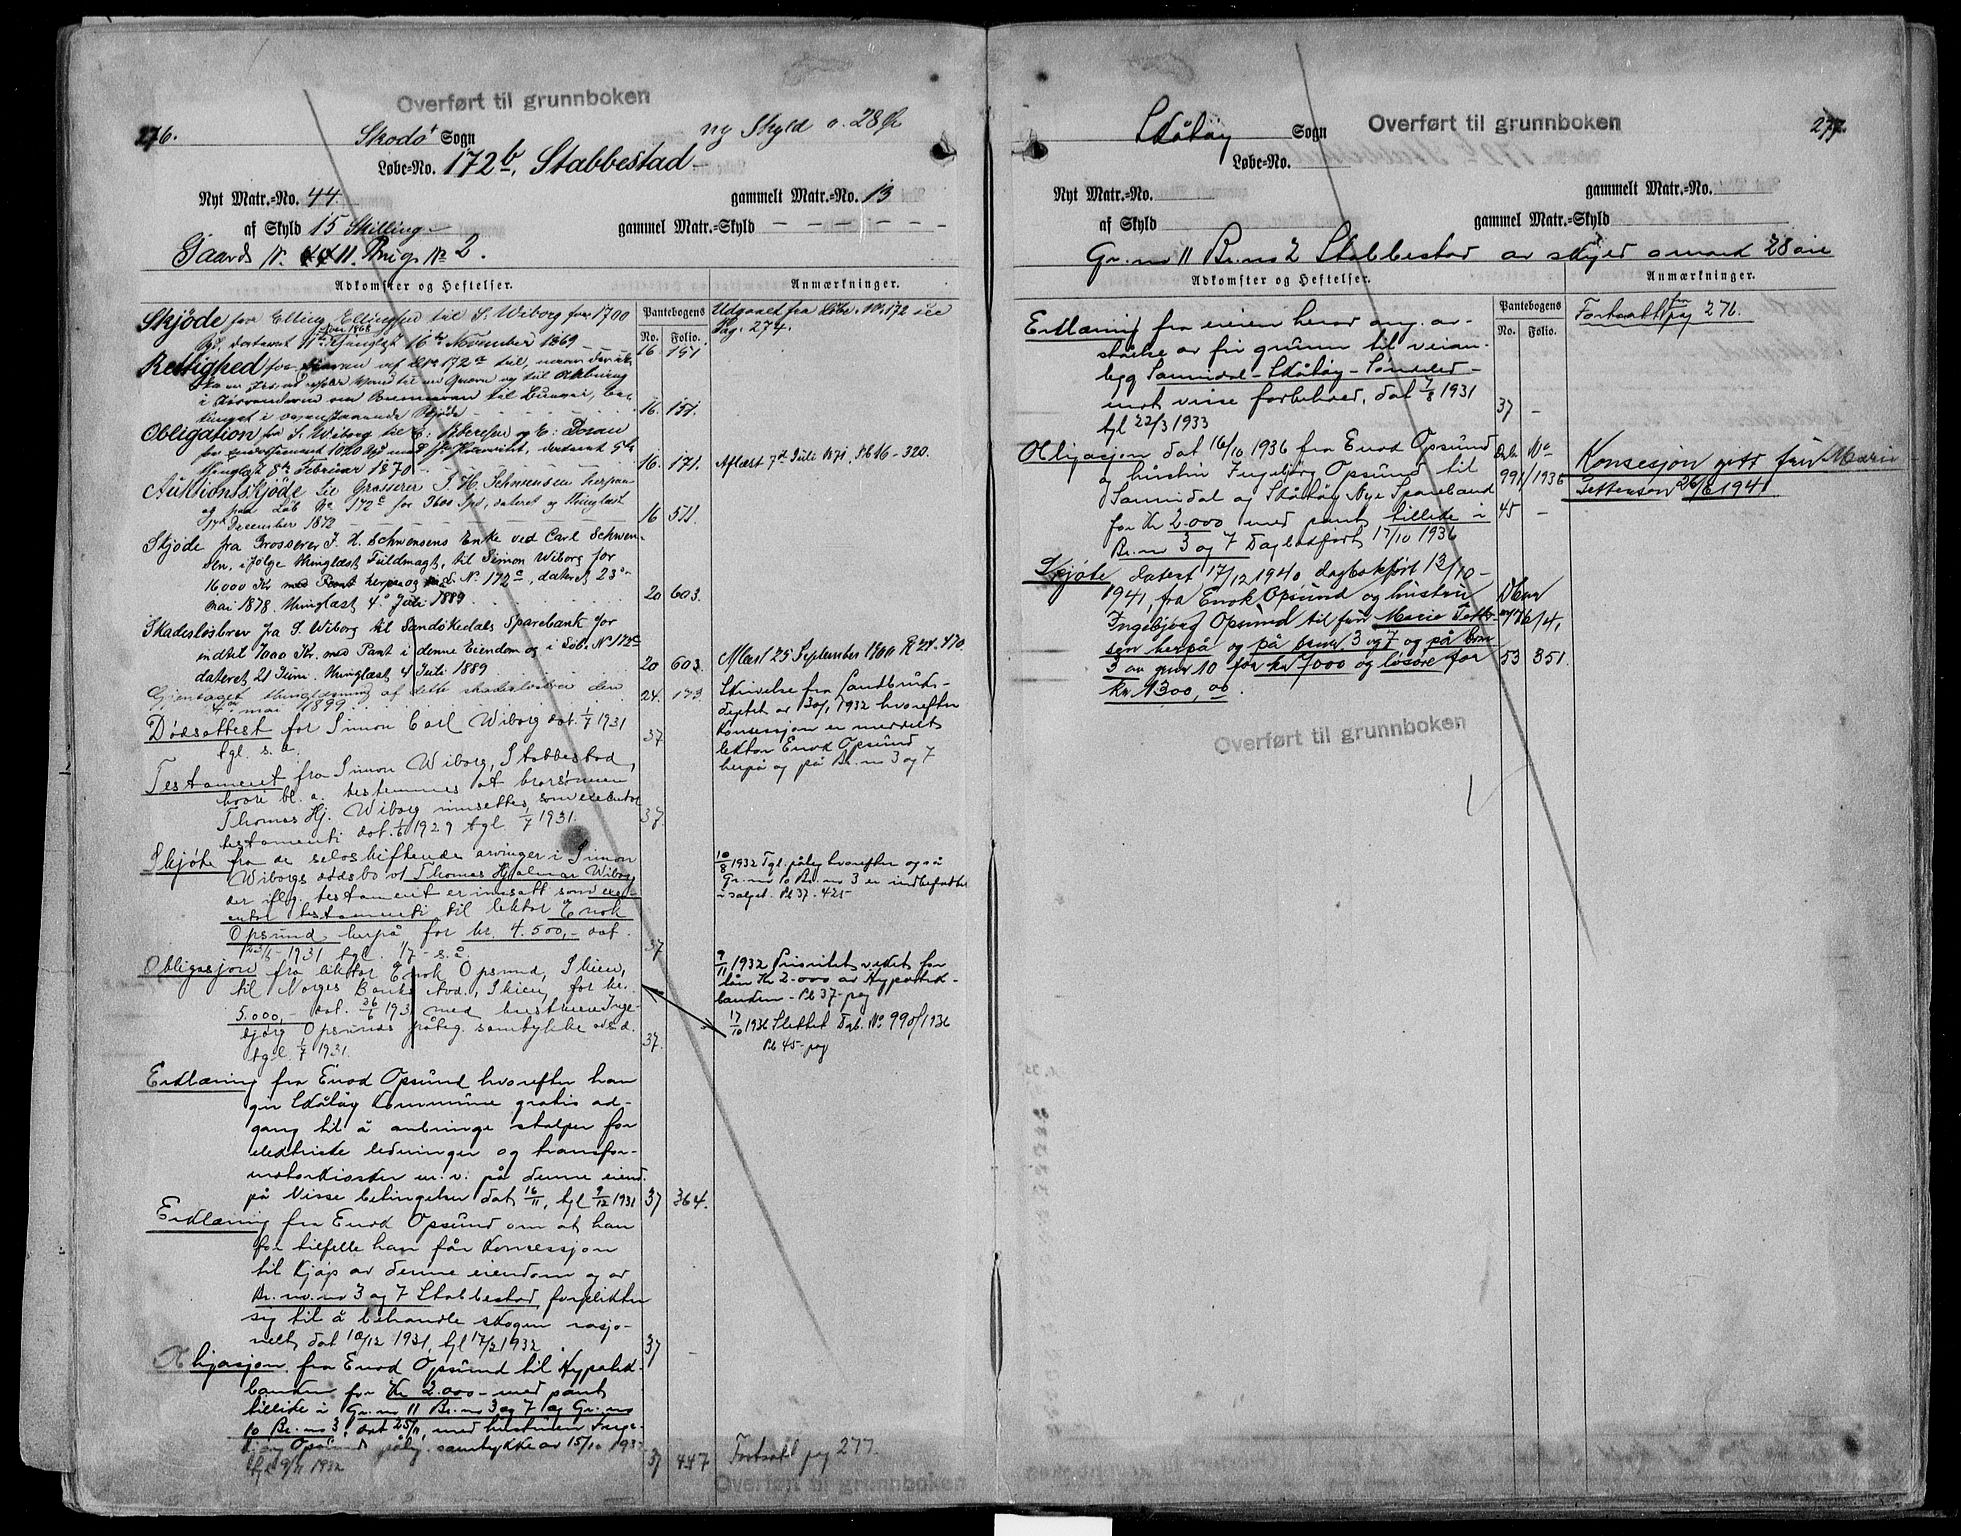 Overført til grunnboken
276.
Skodö Sogn
ny Skyld o. 28 Ør
Løbe-No. 172b, Stabbestad
Nyt Matr.-No. 44.
gammelt Matr.-No. 13
af Skyld 15 Skilling
gammel Matr.-Skyld — — — — —
Gaards Nr. 11. Brugs Nr 2.
Adkomster og Heftelser.
Pantebogens
No. Folio.
Anmærkninger.
Skjöde fra Elling Ellingsen til S. Wiborg for 1700
dateret 11te thinglæst 16de November 1869 16 151
Udgaaet fra Løbe Nr. 172 see
Pag. 274.
Rettighed for ved Lbr 172a til,
til en Qværn og til
til
i ovenstaaende Skjöde 16. 151.
Obligation fra S. Wiborg til E. Petersen og E. Doran
for 1020 Spd med
thinglæst 8de Februar 1870 16. 171.
Aflæst 7de Juli 1871, Pb 16 - 320.
Auktionsskjöde til Grosserer J. H. Schwensen herpaa
og paa Løb Nr 172c for 3600 Spd, dateret og thinglæst
17de December 1872 16 511.
Skjöde fra Grosserer J. H. Schwensens Enke ved Carl Schwen-
sen, ifølge thinglæst Fuldmagt, til Simon Wiborg for
16000 Kr med Pant herpaa og i L. No 172c, dateret 23de
mai 1878. thinglæst 4de Juli 1889 20 603.
Skadesløsbrev fra S. Wiborg til Sandökedals Sparebank for
indtil 7000 Kr. med Pant i denne Eiendom og i Løb. No 172c
dateret 21 Juni. thinglæst 4 Juli 1889 20 603.
Aflæst 25 September 1900 P. 24. 470.
Gjentaget thinglæsning af dette skadesløsbrev den
4de mai 1899 24. 173
Skrivelse fra Landbruks-
dept av 30/1 1932 hvorefter
konsesjon er meddelt
lektor Enok Opsund
herpå og på Br. nr 3 og 7
Dødsattest for Simon Carl Wiborg dat. 1/7 1931
tgl. s. d. 37
Testament fra Simon Wiborg, Stabbestad,
hvori bl. a. bestemmes at brorsønnen
Thomas Hj. Wiborg innsettes som executor
testamenti dat. 1/6 1929 tgl. 1/7 1931. 37.
Skjøte fra de selvskiftende arvinger i Simon
Wiborgs dødsbo v/ Thomas Hjalmar Wiborg
der iflg. testament er innsatt som exe-
cutor testamenti til lektor Enok
Opsund herpå for kr. 4.500,- dat.
1931 tgl. 1/7 - s. å. 37
10/8 1932 Tgl. påleg hvorefter også
Gr. nr 10 Br. nr 3 er indbefattet
i salget. Pb 37. 425
Obligasjon fra lektor Enok Opsund, Skien,
til Norges Banks Avd. Skien, for kr.
5.000,- dat. 26/6 1931 med hustruen Inge-
bjørg Opsunds påteg. samtykke
tgl. 1/7 1931. 37.
9/11 1932 Prioritet veket for
lån Kr 2.000 av Hypotek-
banken - Pb 37 - pag
17/10 1936 Slettet Dgb. No 990/1936
Pb 45 - pag
Erklæring fra Enok Opsund hvorefter han
gir Skåtøy Kommune gratis ad-
gang til å anbringe stolper for
elektriske ledninger og transfor-
matorkiosker m. v. på denne eiend.
på visse betingelser dat 16/11, tgl 9/12 1931 37 364.
Erklæring fra Enok Opsund om at han
for tilfelle han får Konsesjon
til kjøp av denne eiendom og av
Br. nr. 3 og 7 Stabbestad, forplikter
sig til å behandle skogen rasjo-
nelt, dat 10/12 1931, tgl 17/2 1932 37 -
Obligasjon fra Enok Opsund til Hypotek-
banken for Kr 2.000 - med pant
tillike i Gr. nr 11 Br. nr 3 og 7 og Gr. nr
10 Br. nr 3, dat 25/, med hustruen Inge-
bjørg Opsunds påteg. samtykke av 15/10 193
tgl 9/11 1932 37 447.
Fortsatt pag 277.
Overført til grunnboken
277.
Skåtøy Sogn
Overført til grunnboken
Løbe-No.
Nyt Matr.-No.
gammelt Matr.-No.
af Skyld
gammel Matr.-Skyld
Gr. nr 11 Br. nr 2 Stabbestad av skyld o mark 28 øre
Adkomster og Heftelser.
Pantebogens
No. Folio.
Anmærkninger.
Fortsatt fra pag 276.
Erklæring fra eieren herav ang. av-
ståelse av fri grunn til veian-
legg Sannidal - Skåtøy - Søndeled -
mot visse forbehold, dat 7/8 1931
tgl 22/3 1933 37 -
Obligasjon dat 16/10 1936 fra Enok Opsund
og hustru Ingebjørg Opsund til
Sannidal og Skåtøy Nye Sparebank
for Kr 2.000 med pant tillike i
Br. nr 3 og 7 Dagbokført 17/10 1936
Dgb. No
991/1936
45 -
Konsesjon gitt fru Marie
Pettersen 26/6 1941
Skjøte datert 17/12 1940, dagbokført 13/10 -
1941, fra Enok Opsund og hustru
Ingebjørg Opsund til fru Marie Petter-
sen herpå og på bnr 3 og 7 og på bnr
3 av gnr 10 for kr 7000 og løsøre for
kr. 1300,00.
53 351.
Overført til grunnboken